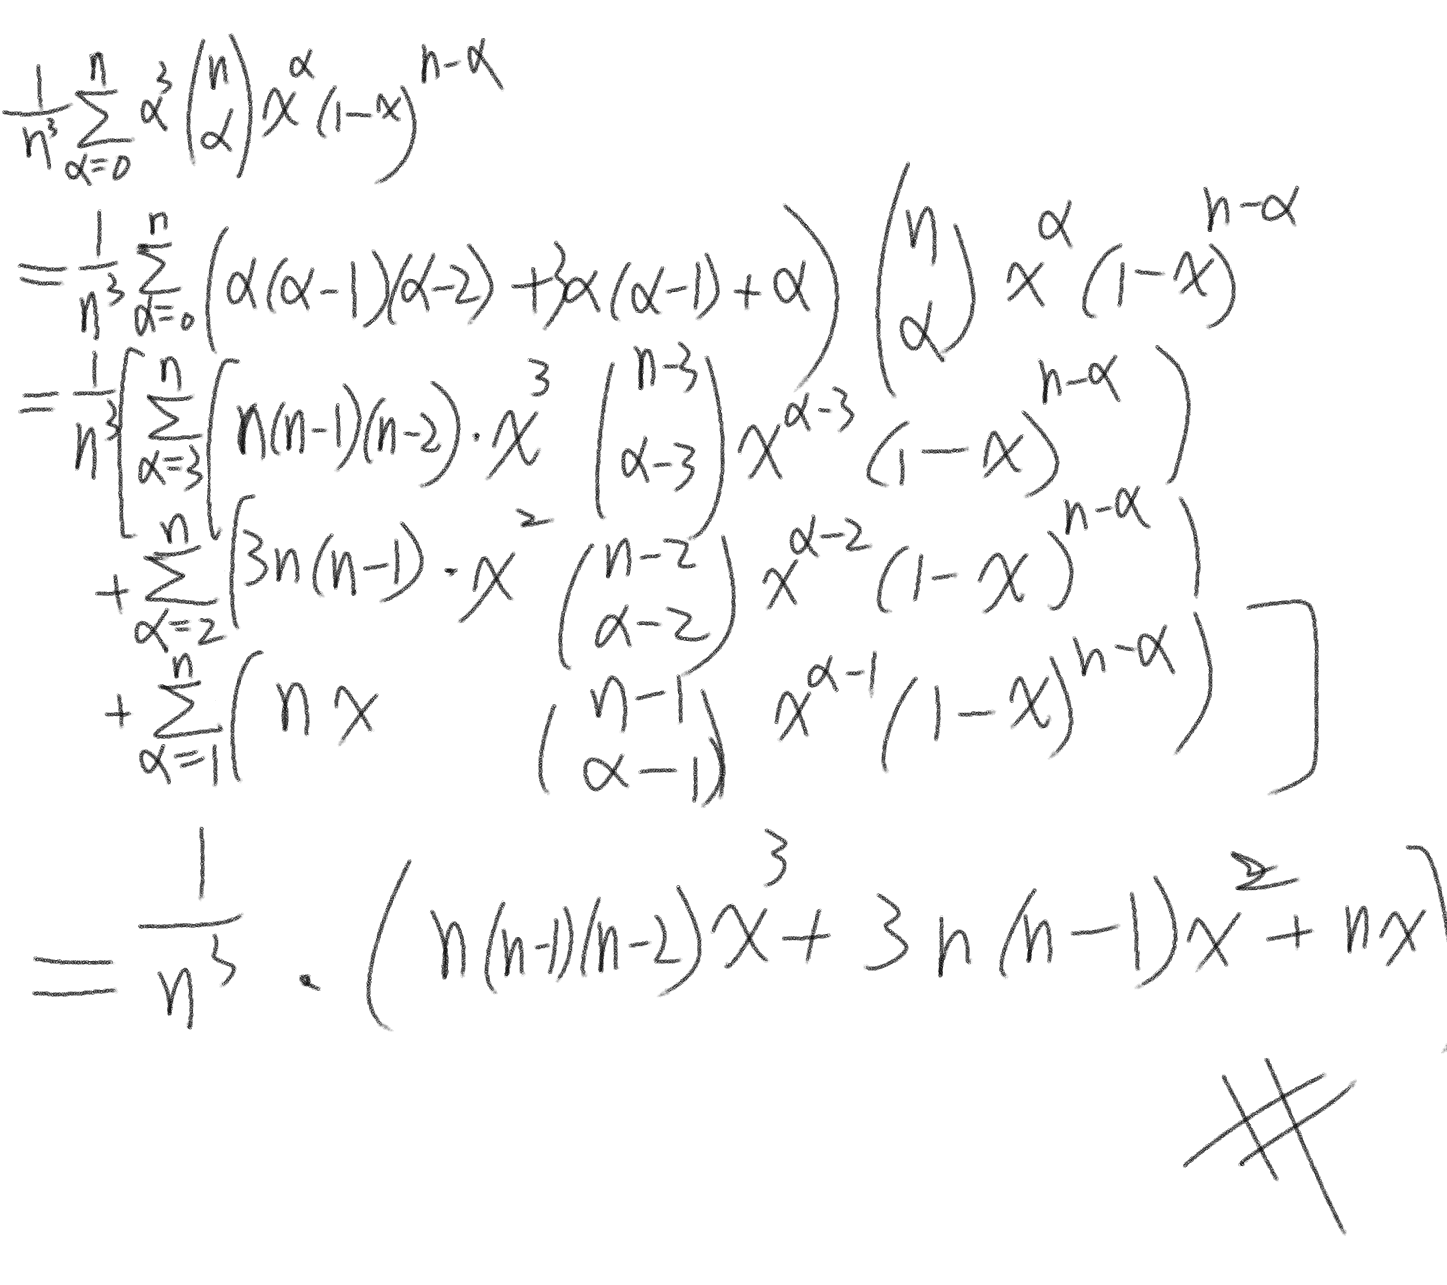 $\frac{1}{n^3}\sum_{\alpha=0}^{n} \alpha^3 \binom{n}{\alpha} x^{\alpha} (1-x)^{n-\alpha}$
$= \frac{1}{n^3}\sum_{\alpha=0}^{n} \left(\alpha(\alpha-1)(\alpha-2) + 3\alpha(\alpha-1) + \alpha\right) \binom{n}{\alpha} x^{\alpha} (1-x)^{n-\alpha}$
$= \frac{1}{n^3}\Big[\sum_{\alpha=3}^{n} \left(n(n-1)(n-2) \cdot x^3 \binom{n-3}{\alpha-3} x^{\alpha-3} (1-x)^{n-\alpha}\right)$
$+ \sum_{\alpha=2}^{n} \left(3n(n-1) \cdot x^2 \binom{n-2}{\alpha-2} x^{\alpha-2} (1-x)^{n-\alpha}\right)$
$+ \sum_{\alpha=1}^{n} \left(nx \binom{n-1}{\alpha-1} x^{\alpha-1} (1-x)^{n-\alpha}\right)\Big]$
$= \frac{1}{n^3} \cdot \left(n(n-1)(n-2)x^3 + 3n(n-1)x^2 + nx\right)$
#